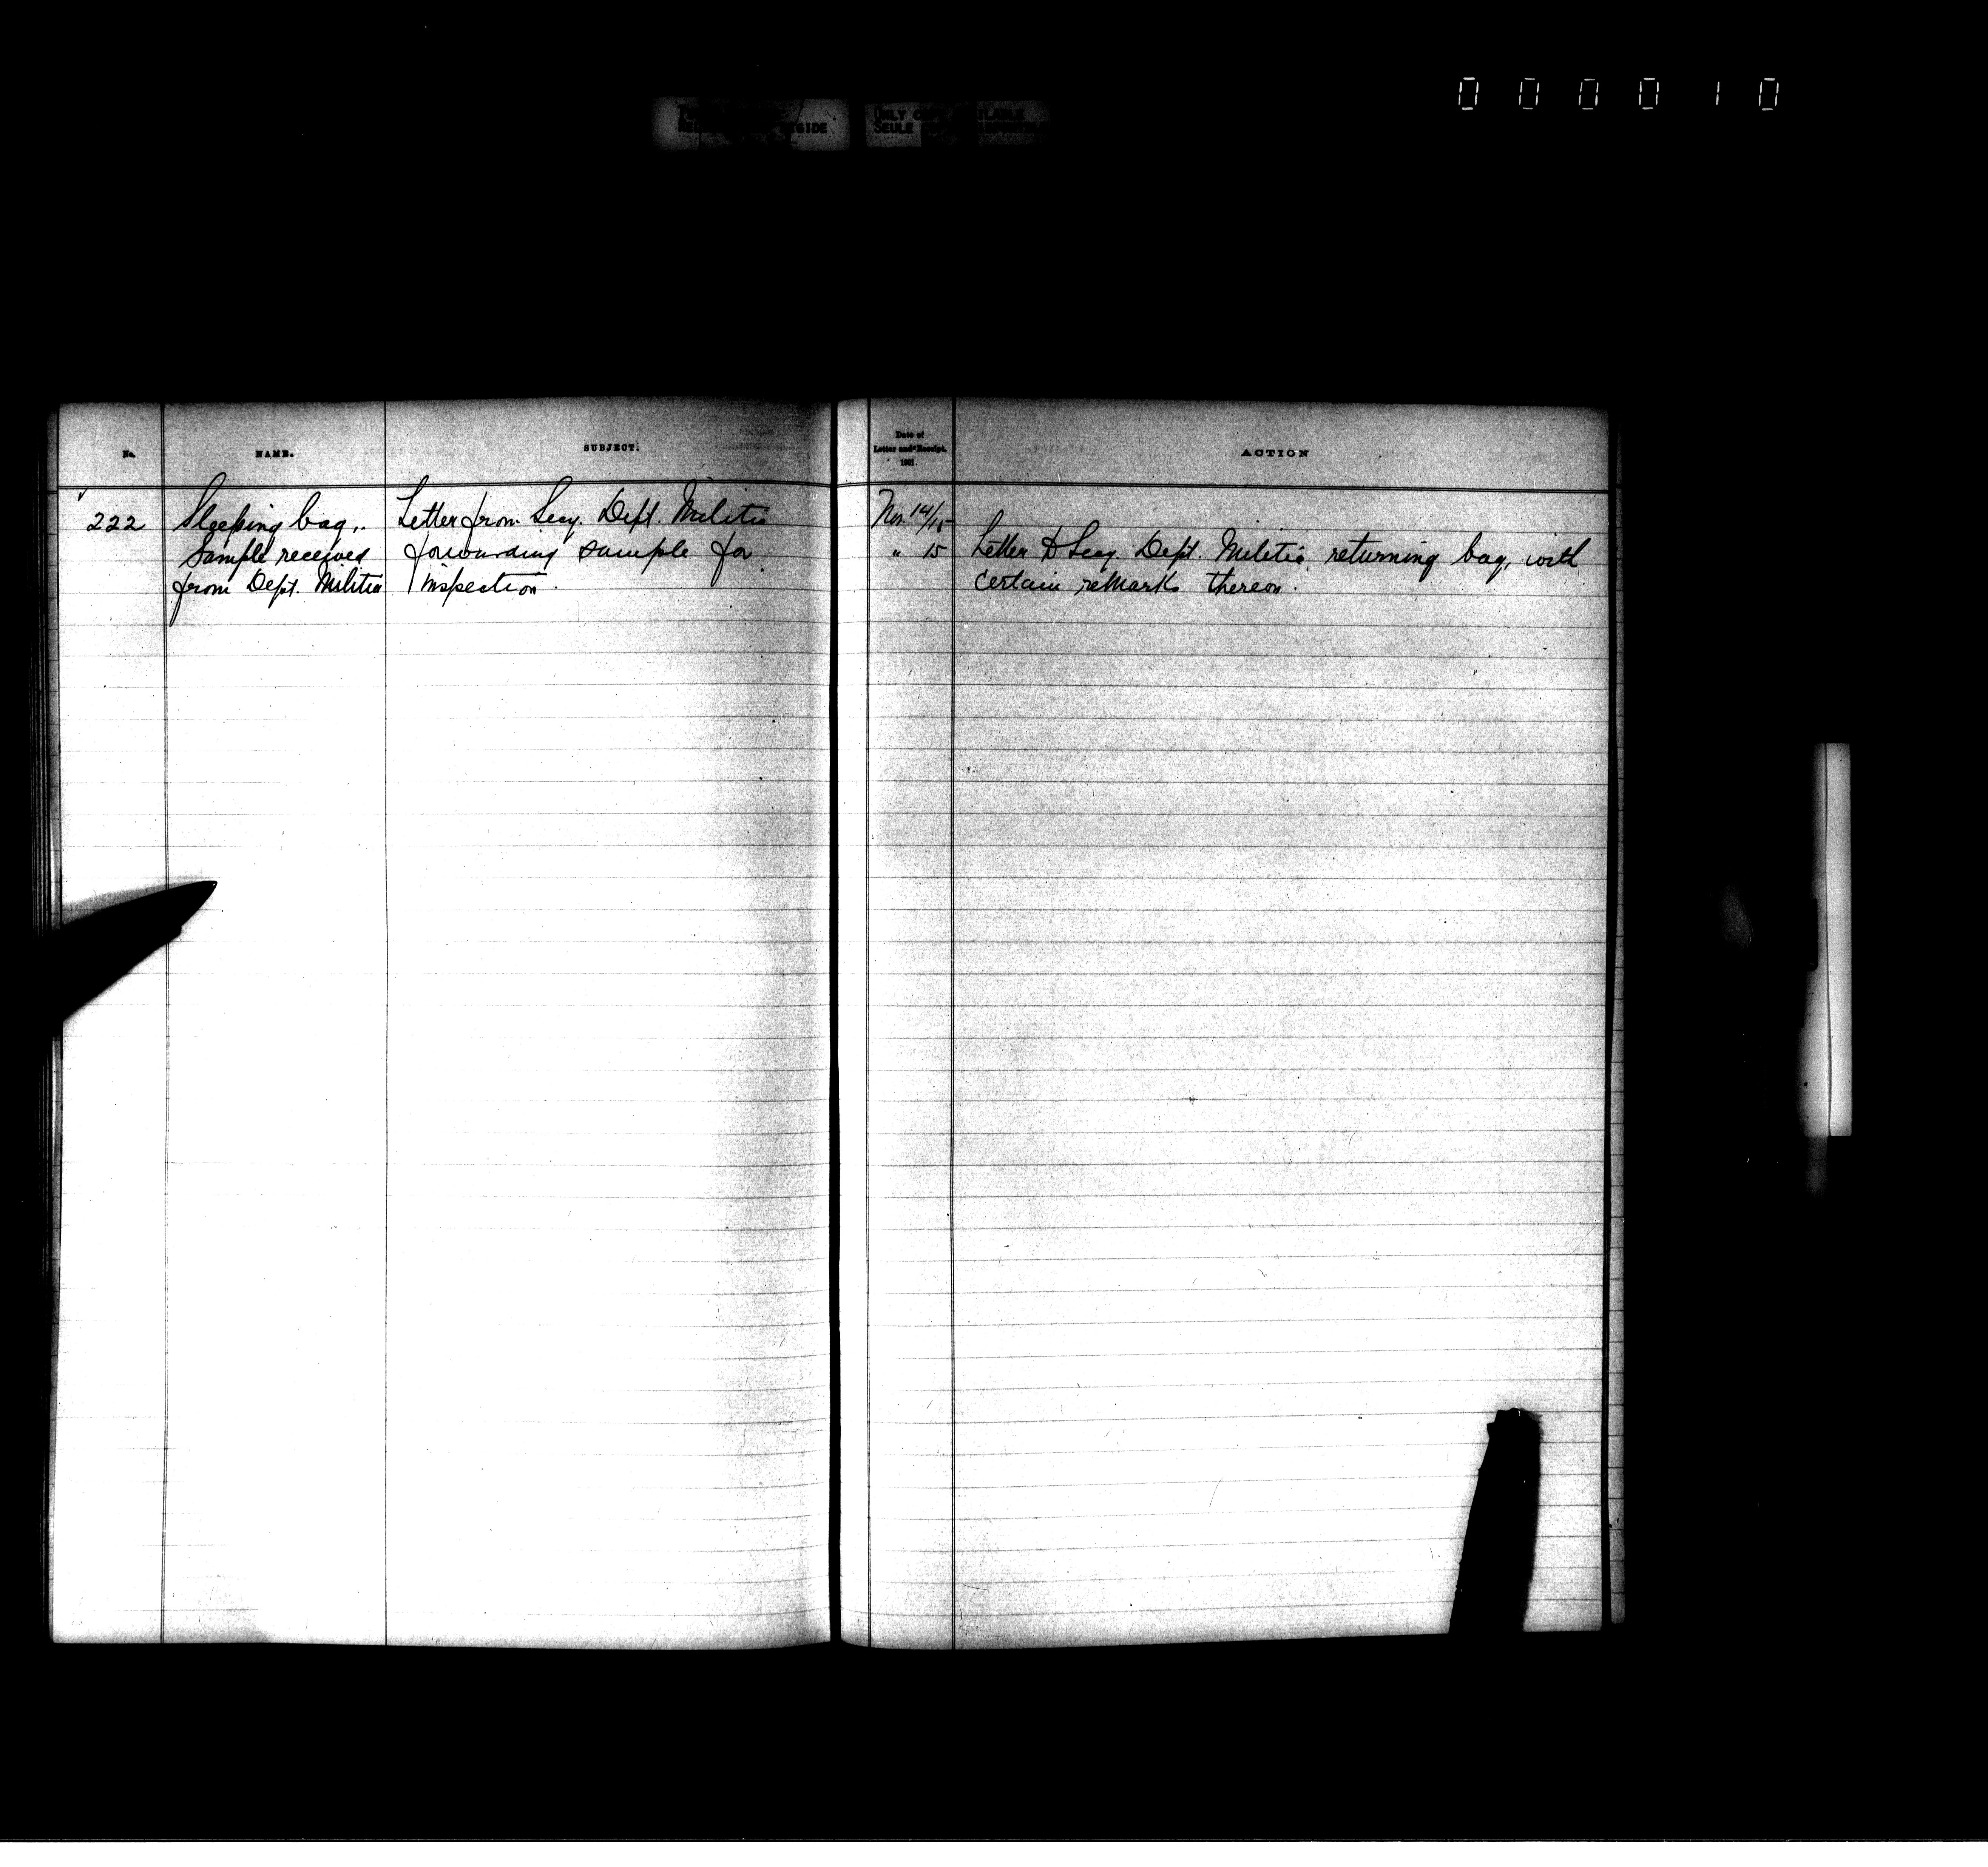 000010
SIDE
ONLY
SEULE
No.
NAME.
SUBJECT.
Date of
Letter and Receipt,
1901.
ACTION
222
Sleeping bag,
Sample received
from Dept. Militia
Letter from Secy. Dept. Militia
forwarding sample for
inspection.
Nov. 14/15
" 15
Letter to Secy. Dept. Militia, returning bag, with
certain remarks thereon.